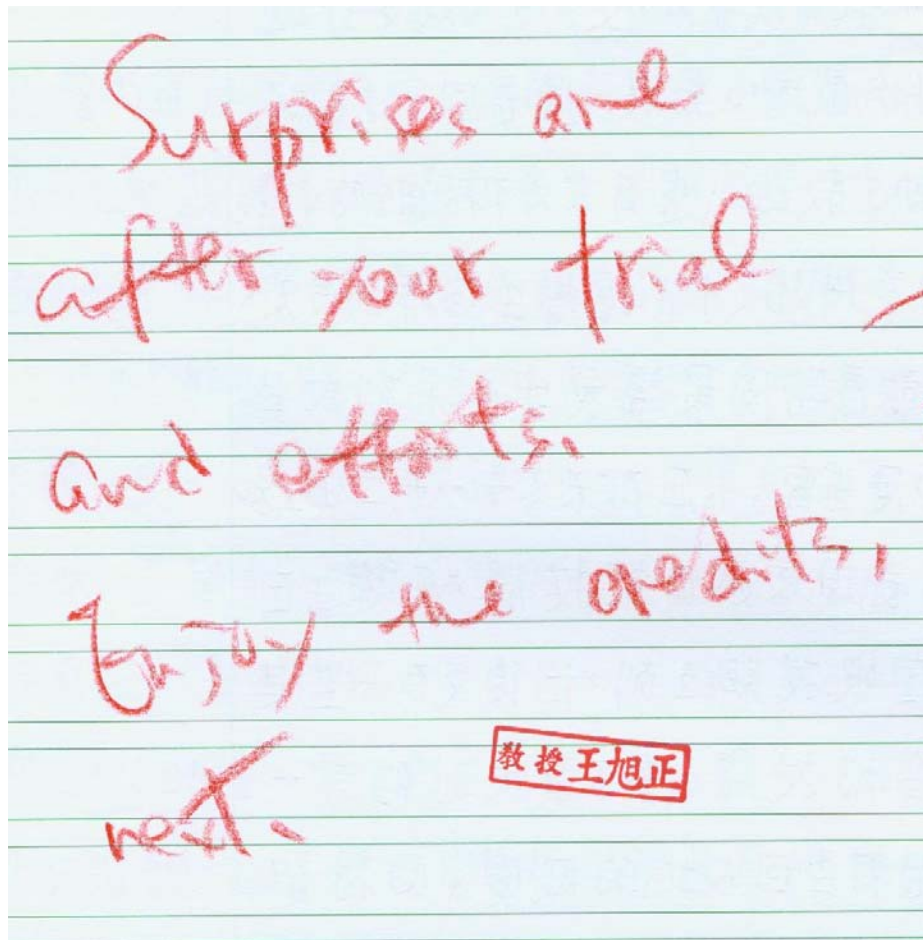 Surprises are
after your trial
and efforts.
Enjoy the credits,
next.
教授王旭正